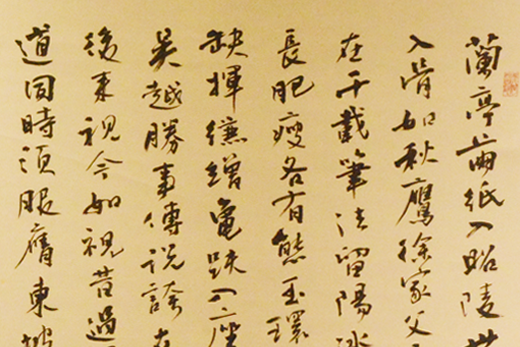 蘭亭繭紙入昭陵世
入骨如秋鷹徐家父
在千載筆法留陽冰
長肥瘦各有態玉環
缺揮縑繒龜趺入座
吳越勝事傳說誇
後來視今如視昔過
道同時須服膺東坡